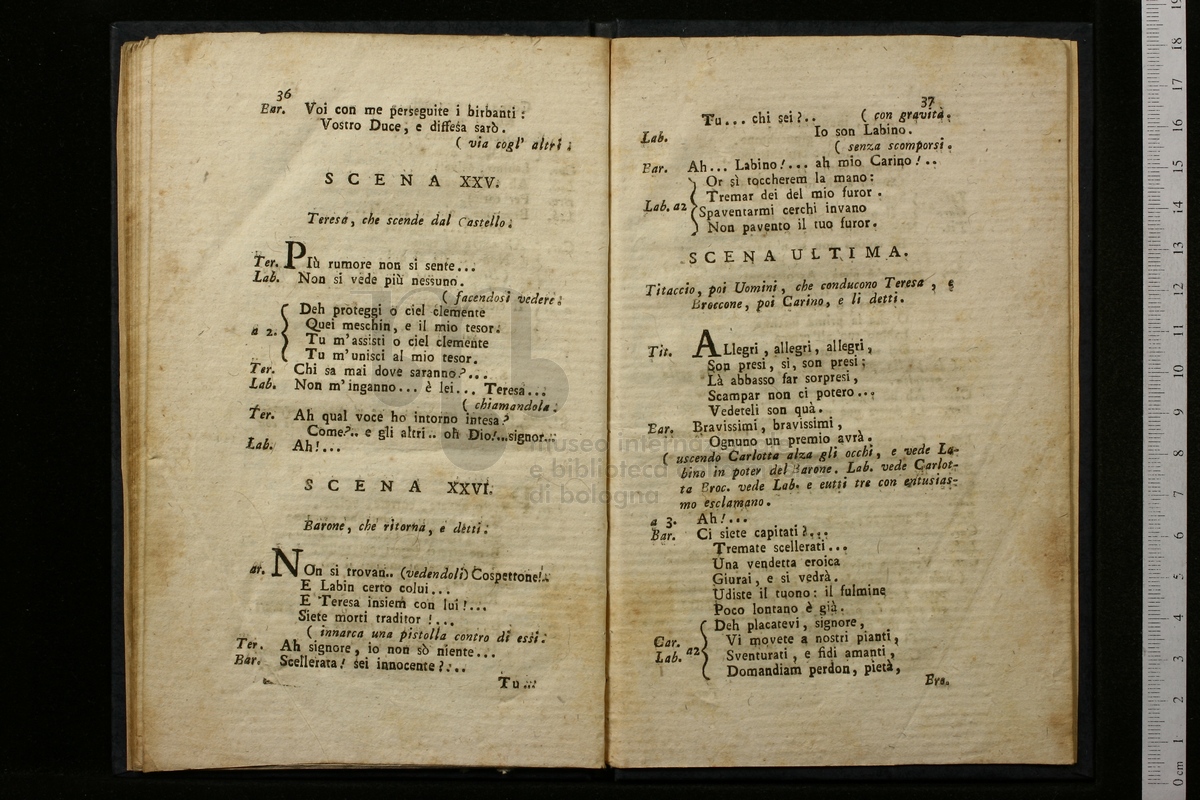 36
Bar. Voi con me perseguite i birbanti:
Vostro Duce, e diffesa sarò.
( via cogl' altri.
SCENA XXV.
Teresa, che scende dal Castello.
Ter. PIù rumore non si sente...
Lab. Non si vede più nessuno.
( facendosi vedere.
a 2. Deh proteggi o ciel clemente
Quei meschin, e il mio tesor.
Tu m'assisti o ciel clemente
Tu m'unisci al mio tesor.
Ter. Chi sa mai dove saranno?...
Lab. Non m'inganno... è lei... Teresa...
( chiamandola.
Ter. Ah qual voce ho intorno intesa?
Come?.. e gli altri.. oh Dio!...signor...
Lab. Ah!...
SCENA XXVI.
Barone, che ritorna, e detti.
ar. NOn si trovan.. (vedendoli) Cospettone!..
E Labin certo colui...
E Teresa insiem con lui!...
Siete morti traditor!...
( innarca una pistolla contro di essi.
Ter. Ah signore, io non sò niente...
Bar. Scellerata! sei innocente?...
Tu...
37
Tu... chi sei?.. ( con gravità.
Lab. Io son Labino.
( senza scomporsi.
Bar. Ah... Labino!... ah mio Carino!..
Or sì toccherem la mano:
Tremar dei del mio furor.
Lab. a2 Spaventarmi cerchi invano
Non pavento il tuo furor.
SCENA ULTIMA.
Titaccio, poi Uomini, che conducono Teresa, e
Broccone, poi Carino, e li detti.
Tit. ALlegri, allegri, allegri,
Son presi, si, son presi;
Là abbasso far sorpresi,
Scampar non ci potero...
Vedeteli son quà.
Bar. Bravissimi, bravissimi,
Ognuno un premio avrà.
( uscendo Carlotta alza gli occhi, e vede La-
bino in poter del Barone. Lab. vede Carlot-
ta Broc. vede Lab. e tutti tre con entusias-
mo esclamano.
a 3. Ah!...
Bar. Ci siete capitati?...
Tremate scellerati...
Una vendetta eroica
Giurai, e si vedrà.
Udiste il tuono: il fulmine
Poco lontano è già.
Car. Lab. a2 Deh placatevi, signore,
Vi movete a nostri pianti,
Sventurati, e fidi amanti,
Domandiam perdon, pietà,
Bro.
museo interna
e biblioteca
di bologna
0 cm 1 2 3 4 5 6 7 8 9 10 11 12 13 14 15 16 17 18 19